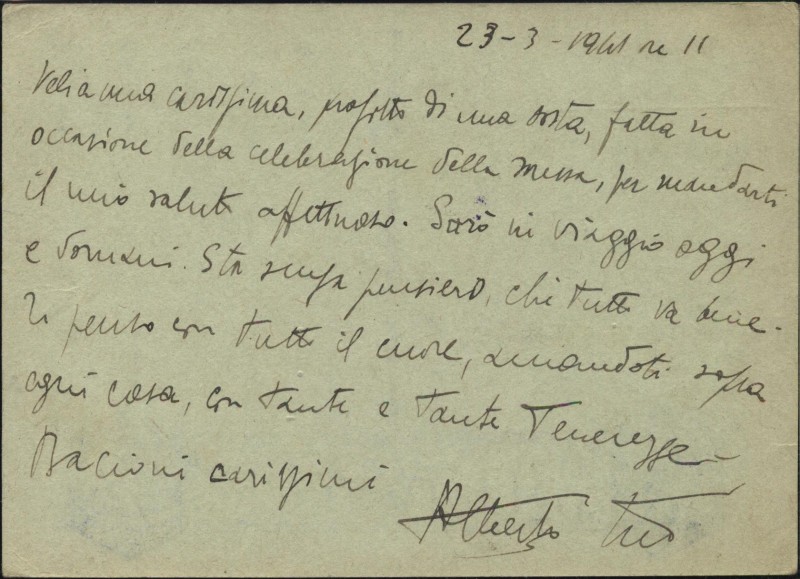 23-3-1941 ore 11
Velia mia carissima, profitto di una sosta, fatta in
occasione della celebrazione della messa, per mandarti
il mio saluto affettuoso. Sarò in viaggio oggi
e domani. Sta senza pensiero, chè tutto va bene.
Ti penso con tutto il cuore, amandoti sopra
ogni cosa, con tante e tante tenerezze.
Bacioni carissimi
Alberto Tuo